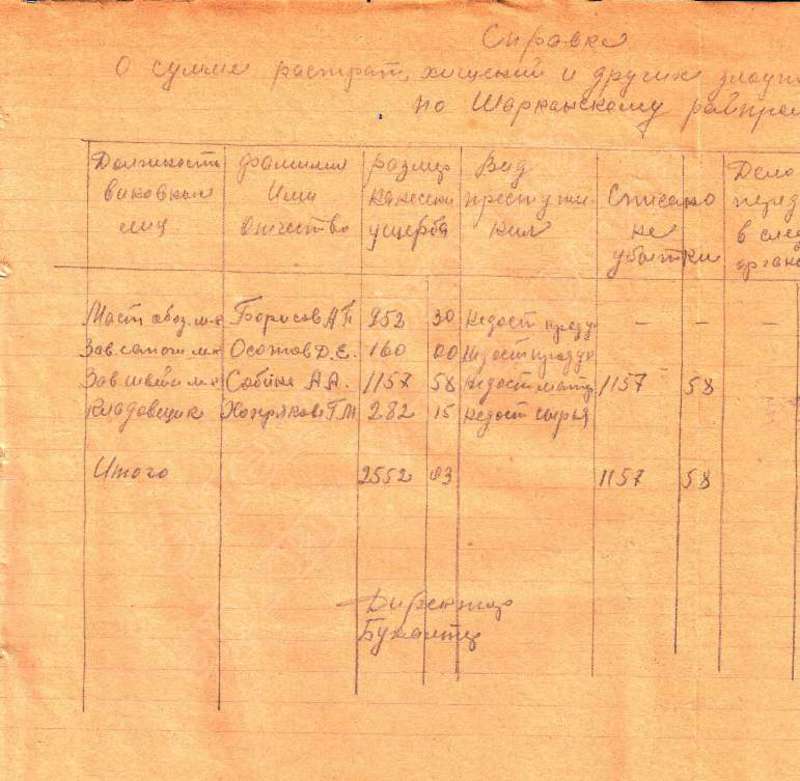 Справка
О сумме растрат, хищений и других злоуп
по Шарканскому райпром
Должность виновных лиц фамилия Имя Отчество размер нанесен ущерба Вид преступления Списано на убытки Дело перед в след органы
Маст обоз. м-к Борисов А П 952 30 недост проду — —
Зав. сапож м-к Осотов Д. Е. 160 00 недост продук
Зав швейн м-к Сабина А А. 1157 58 недост мат 1157 58
Кладовщик Хохряков Г М 282 15 недост сырья
Итого 2552 03 1157 58
Директор
Бухалтер